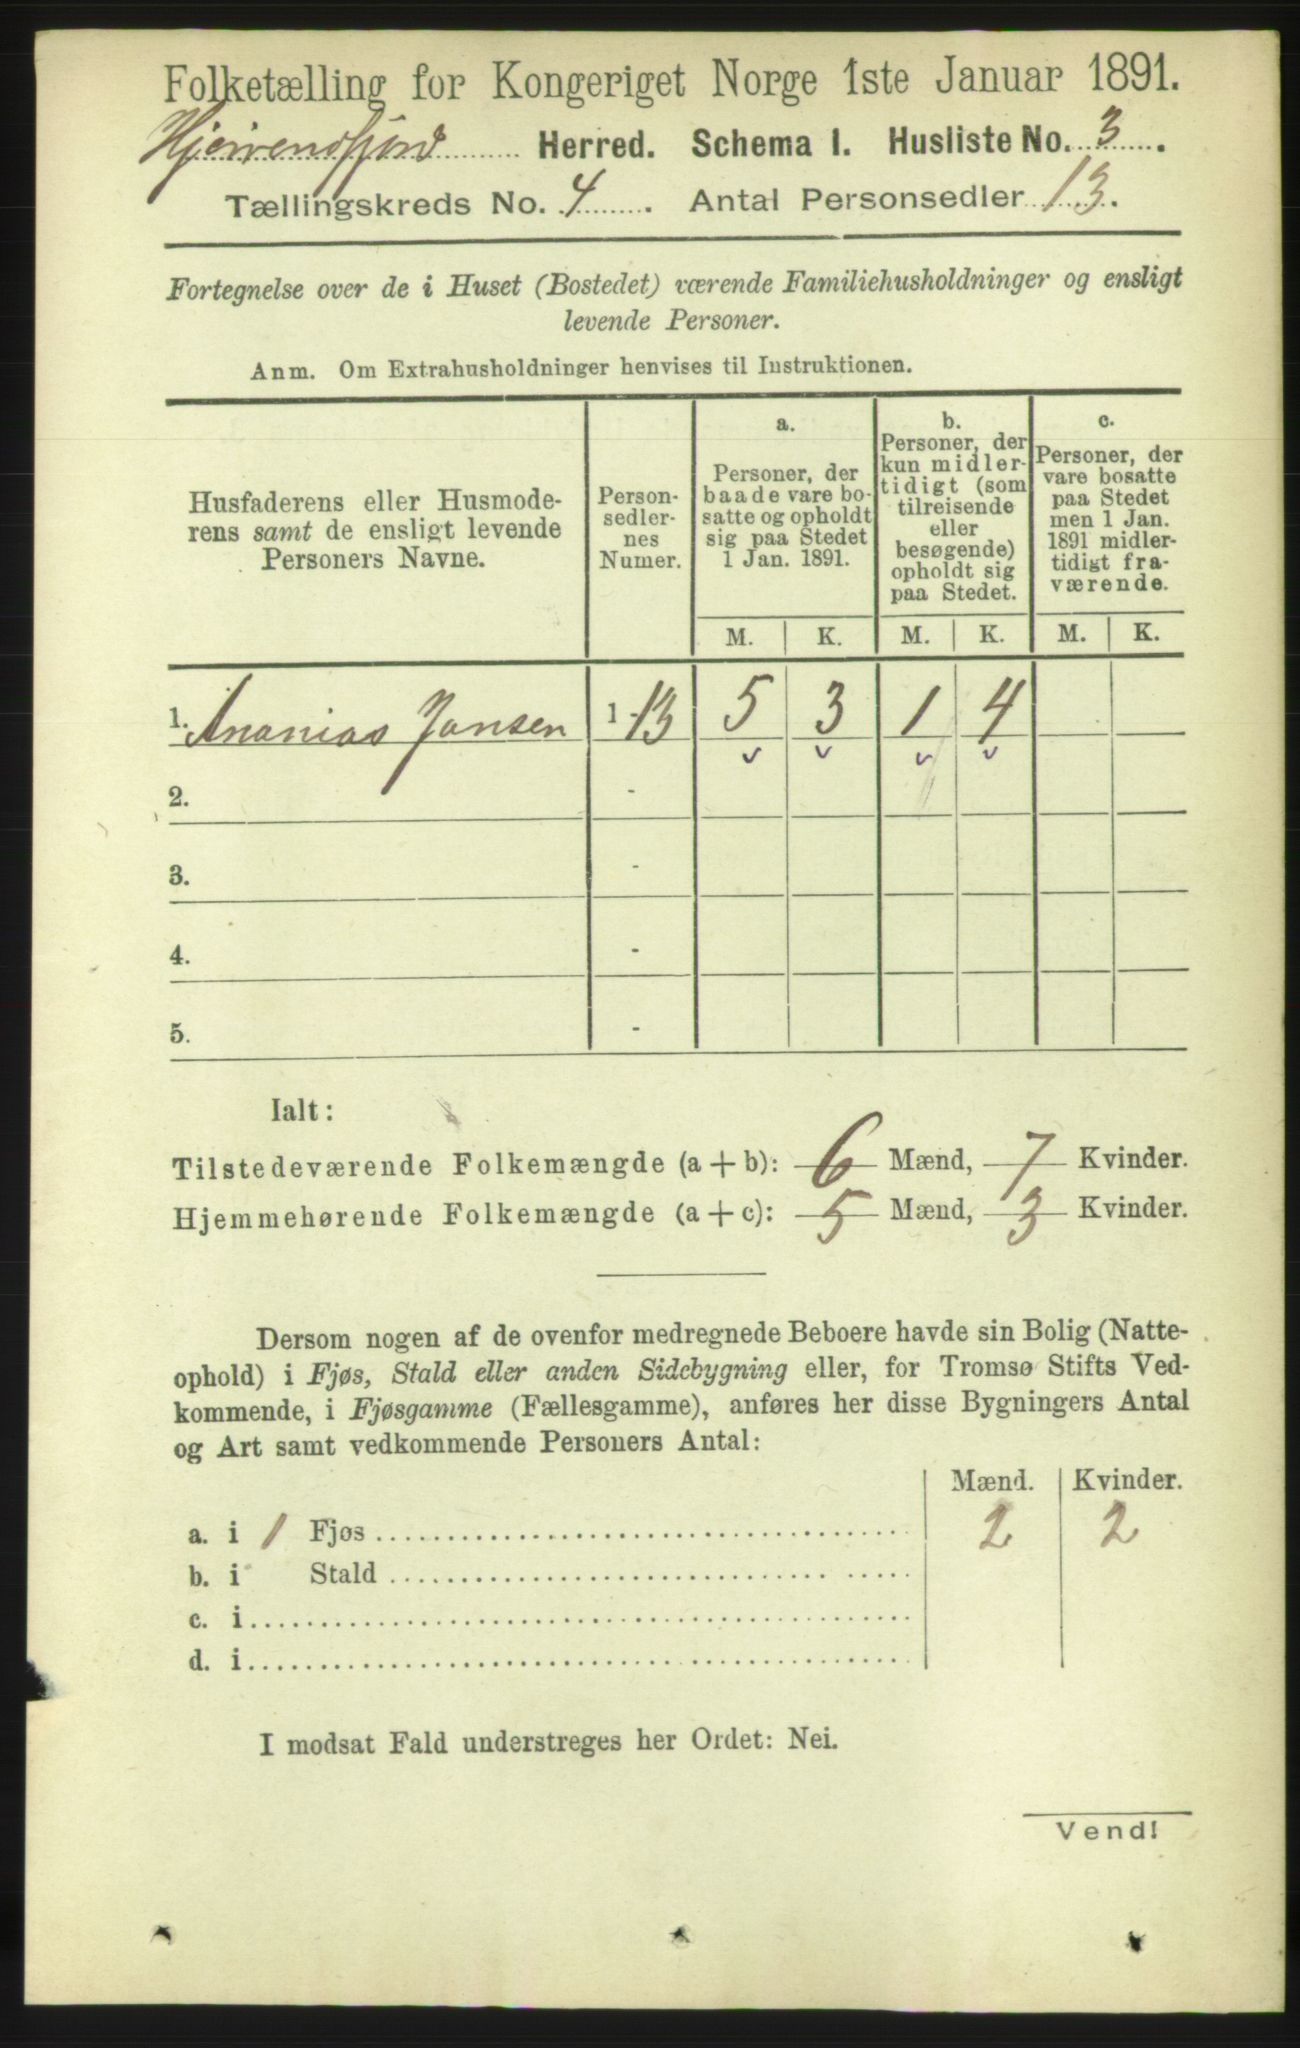 Folketælling for Kongeriget Norge 1ste Januar 1891.
Hjørrendfjord Herred. Schema I. Husliste No. 3.
Tællingskreds No. 4. Antal Personsedler 13.
Fortegnelse over de i Huset (Bostedet) værende Familiehusholdninger og ensligt
levende Personer.
Anm. Om Extrahusholdninger henvises til Instruktionen.
Husfaderens eller Husmode-
rens samt de ensligt levende
Personers Navne.
Person-
sedler-
nes
Numer.
a.
Personer, der
baade vare bo-
satte og opholdt
sig paa Stedet
1 Jan. 1891.
b.
Personer, der
kun midler-
tidigt (som
tilreisende
eller
besøgende)
opholdt sig
paa Stedet.
c.
Personer, der
vare bosatte
paa Stedet
men 1 Jan.
1891 midler-
tidigt fra-
værende.
M. K. M. K. M. K.
1. Ananias Jansen 1-13 5 3 1 4
2. -
3. -
4. -
5. -
Ialt:
Tilstedeværende Folkemængde (a + b): 6 Mænd, 7 Kvinder.
Hjemmehørende Folkemængde (a + c): 5 Mænd, 3 Kvinder.
Dersom nogen af de ovenfor medregnede Beboere havde sin Bolig (Natte-
ophold) i Fjøs, Stald eller anden Sidebygning eller, for Tromsø Stifts Ved-
kommende, i Fjøsgamme (Fællesgamme), anføres her disse Bygningers Antal
og Art samt vedkommende Personers Antal:
Mænd. Kvinder.
a. i 1 Fjøs 2 2
b. i Stald
c. i
d. i
I modsat Fald understreges her Ordet: Nei.
Vend!